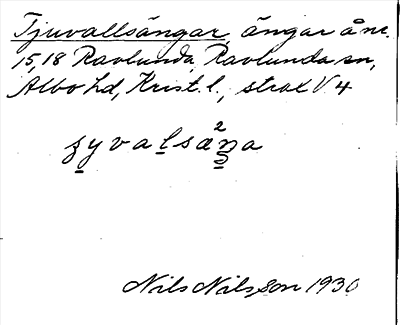 Tjuvallsängar, ängar å nr.
15,18 Ravlunda, Ravlunda sn,
Albo hd, Krist. l., strax V 4
Nils Nilsson 1930